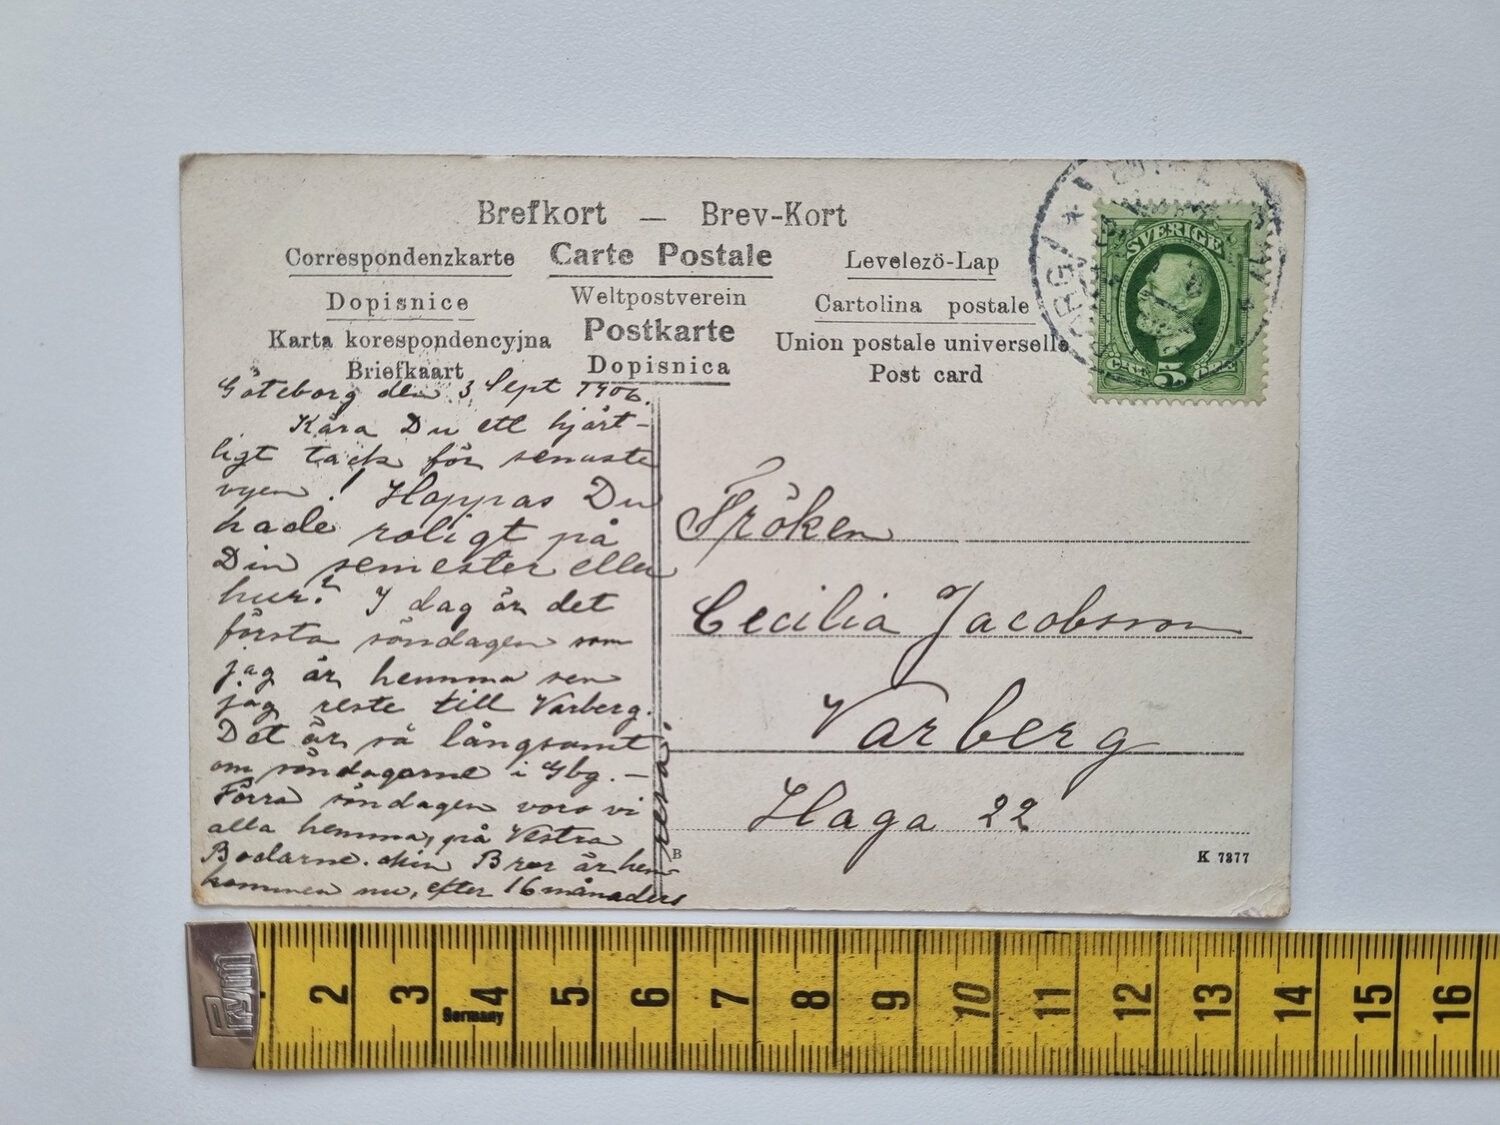 Brefkort — Brev-Kort
Correspondenzkarte Carte Postale Levelezö-Lap
Dopisnice Weltpostverein Cartolina postale
Karta korespondencyjna Postkarte Union postale universelle
Briefkaart Dopisnica Post card
SVERIGE
5
Göteborg den 3 Sept 1906.
Kära Du ett hjärt-
ligt tack för senaste
vyen! Hoppas Du
hade roligt på
Din semester eller
hur? I dag är det
första söndagen som
jag är hemma sen
jag reste till Varberg.
Det är så långsamt
om söndagarne i Gbg. –
Förra söndagen voro vi
alla hemma, på Vestra
Bodarne. Min Bror är hem-
kommen nu, efter 16 månaders
resa,
Fröken
Cecilia Jacobsson
Varberg
Haga 22
B
K 7377
2 3 4 5 6 7 8 9 10 11 12 13 14 15 16
Germany
Prym